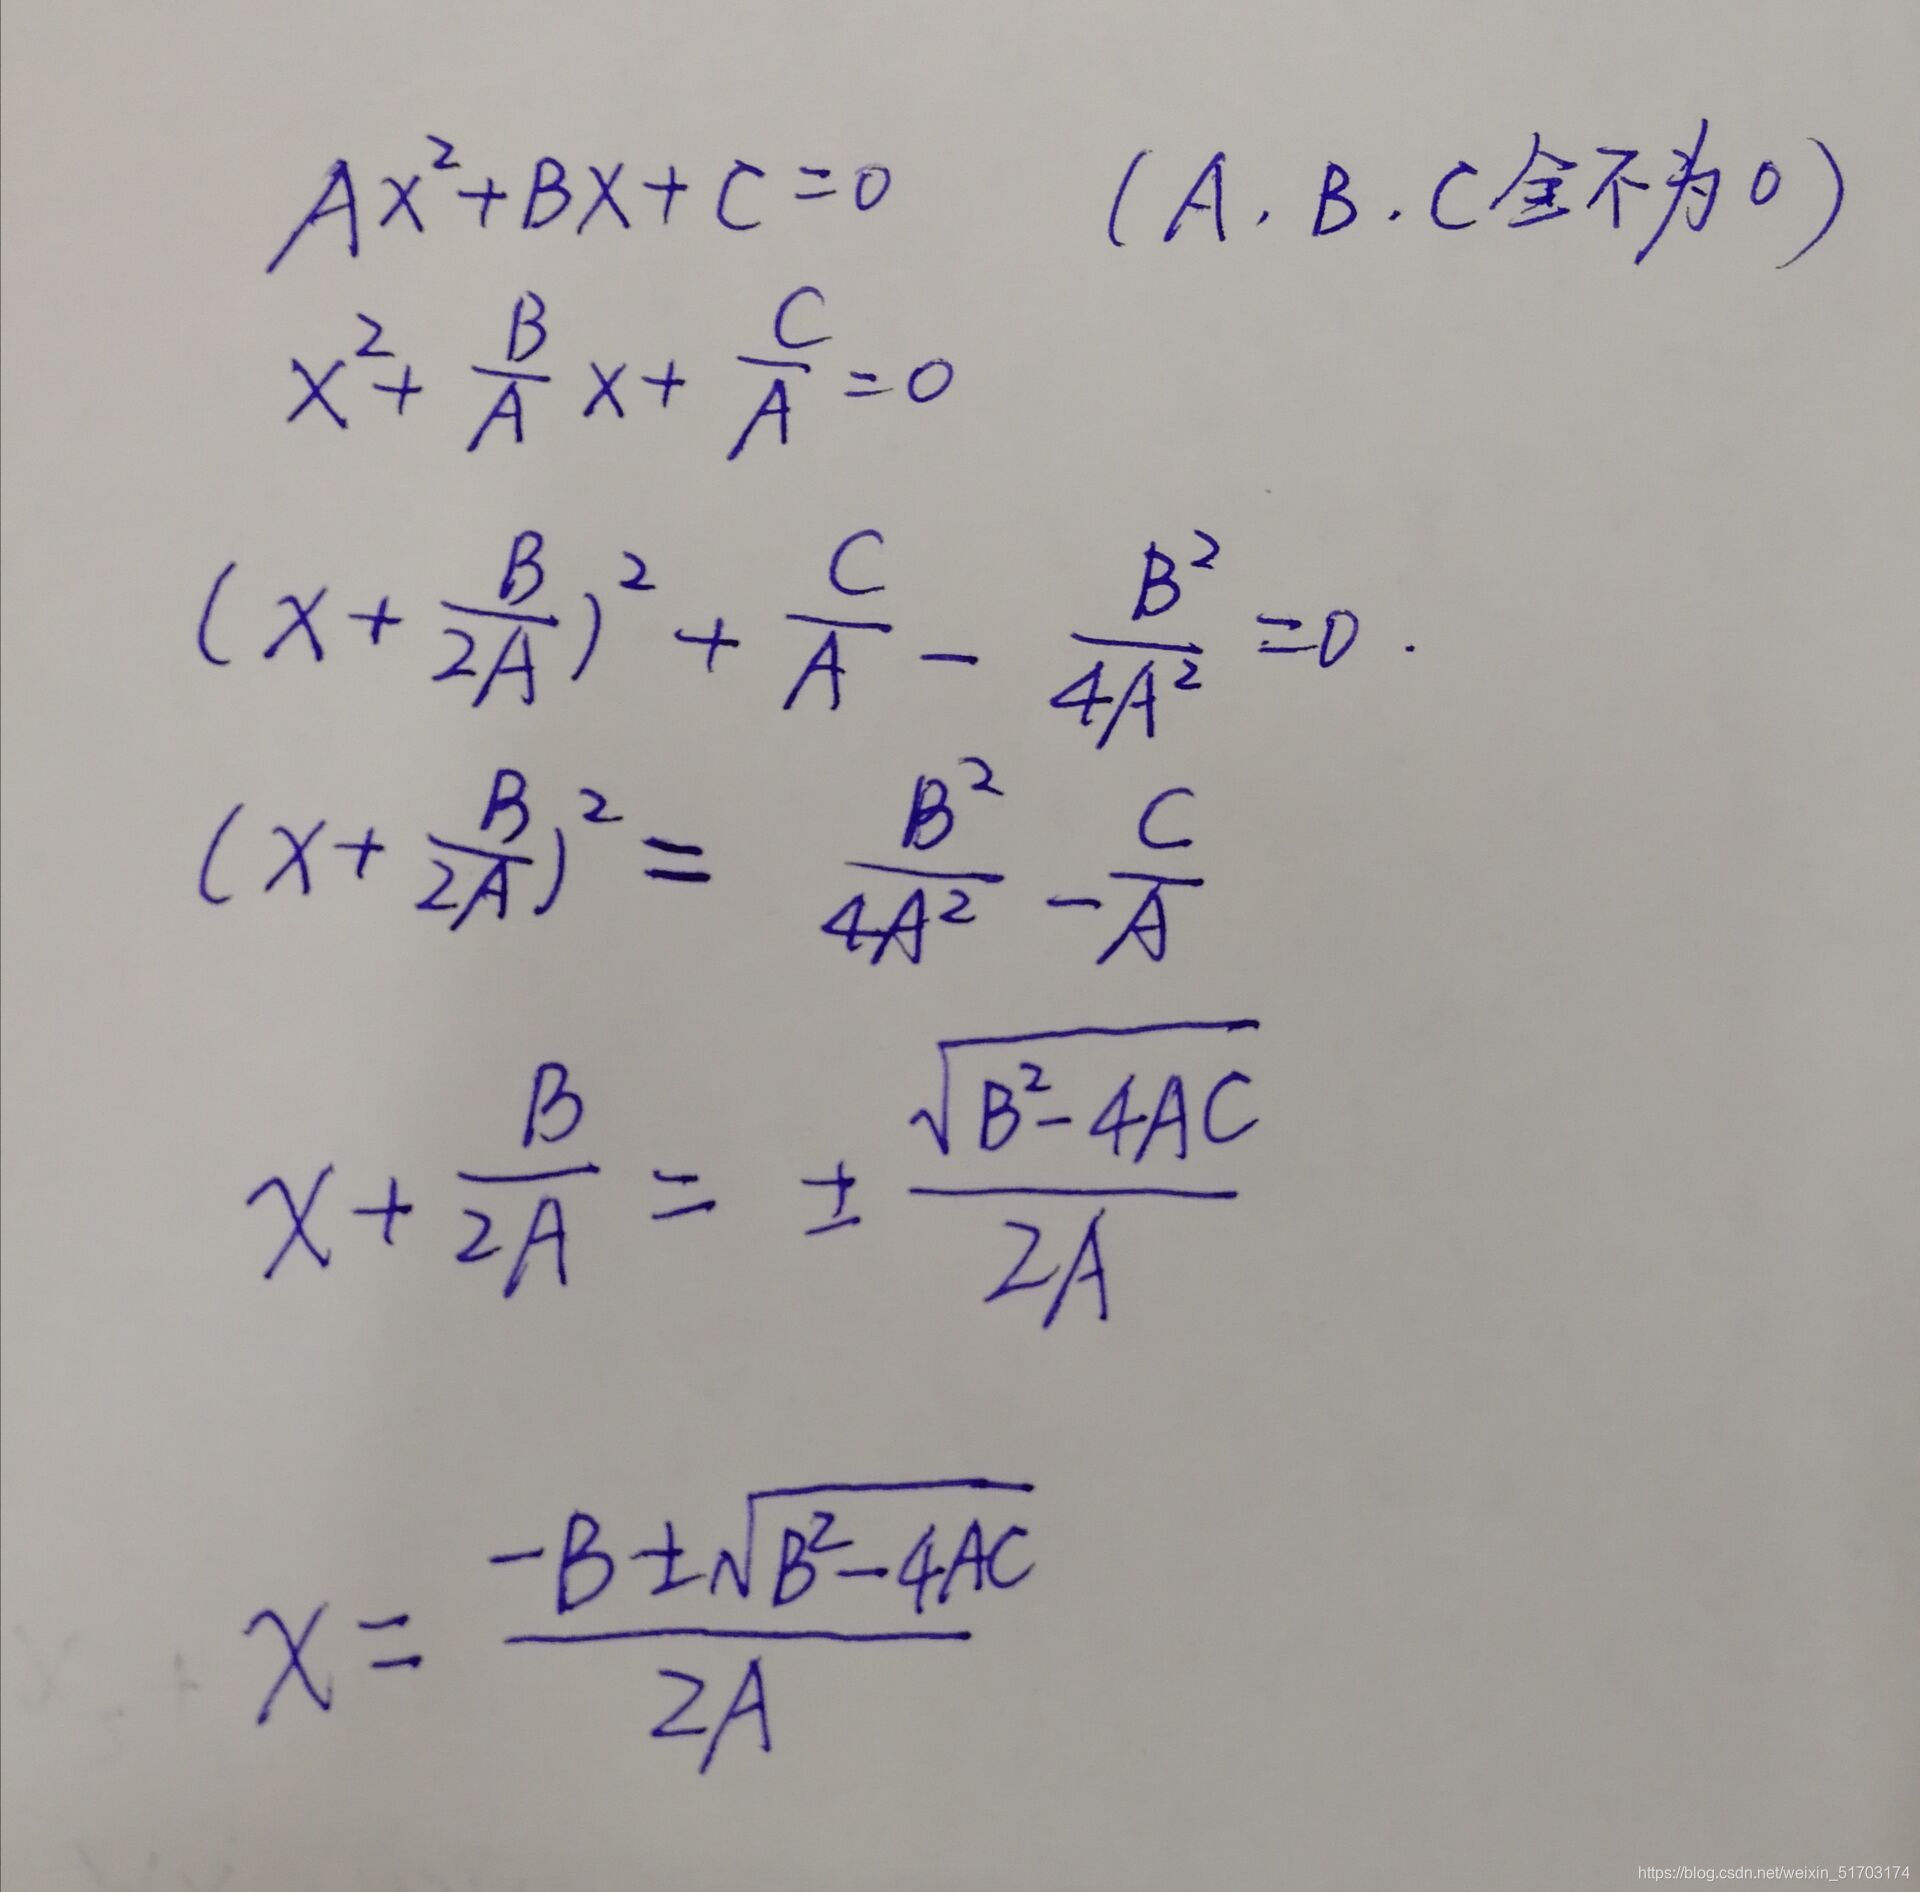 Ax²+Bx+C=0 (A.B.C全不为0)
x²+B/A x+C/A=0
(x+B/2A)²+C/A-B²/4A²=0.
(x+B/2A)²=B²/4A²-C/A
x+B/2A=±√(B²-4AC)/2A
x=-B±√(B²-4AC)/2A
https://blog.csdn.net/weixin_51703174